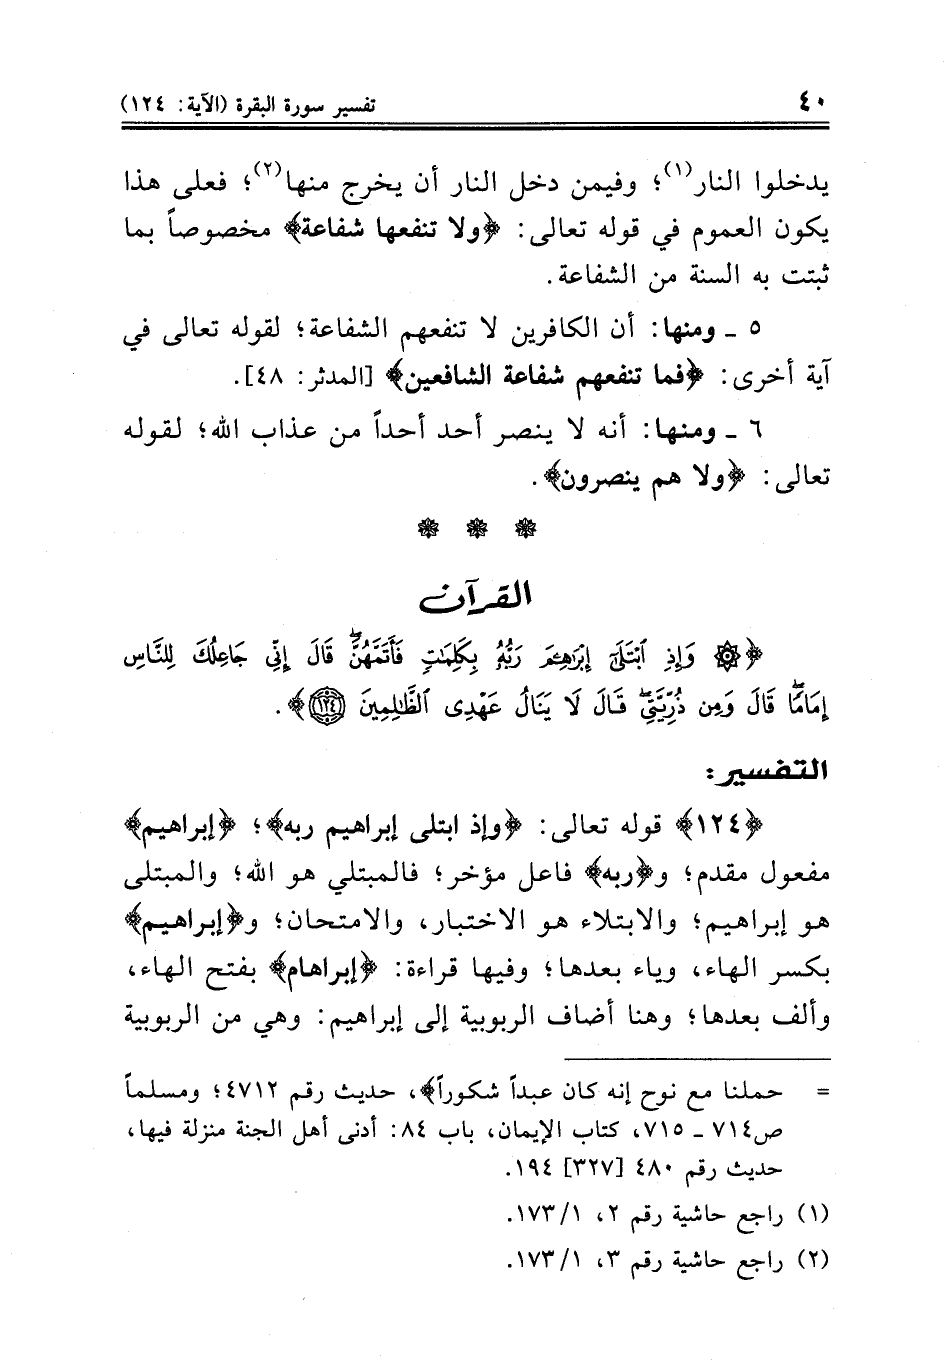 ٤٠ تفسير سورة البقرة (الآية: ١٢٤)
يدخلوا النار(١)؛ وفيمن دخل النار أن يخرج منها(٢)؛ فعلى هذا
يكون العموم في قوله تعالى: ﴿ولا تنفعها شفاعة﴾ مخصوصاً بما
ثبتت به السنة من الشفاعة.
٥ ـ ومنها: أن الكافرين لا تنفعهم الشفاعة؛ لقوله تعالى في
آية أخرى: ﴿فما تنفعهم شفاعة الشافعين﴾ [المدثر: ٤٨].
٦ ـ ومنها: أنه لا ينصر أحد أحداً من عذاب الله؛ لقوله
تعالى: ﴿ولا هم ينصرون﴾.
* * *
القرآن
﴿۞ وَإِذِ ٱبْتَلَىٰٓ إِبْرَٰهِـۧمَ رَبُّهُۥ بِكَلِمَٰتٍ فَأَتَمَّهُنَّۖ قَالَ إِنِّي جَاعِلُكَ لِلنَّاسِ
إِمَامًاۖ قَالَ وَمِن ذُرِّيَّتِيۖ قَالَ لَا يَنَالُ عَهْدِى ٱلظَّٰلِمِينَ ١٢٤﴾.
التفسير:
﴿١٢٤﴾ قوله تعالى: ﴿وإذ ابتلى إبراهيم ربه﴾؛ ﴿إبراهيم﴾
مفعول مقدم؛ و﴿ربه﴾ فاعل مؤخر؛ فالمبتلي هو الله؛ والمبتلى
هو إبراهيم؛ والابتلاء هو الاختبار، والامتحان؛ و﴿إبراهيم﴾
بكسر الهاء، وياء بعدها؛ وفيها قراءة: ﴿إبراهام﴾ بفتح الهاء،
وألف بعدها؛ وهنا أضاف الربوبية إلى إبراهيم: وهي من الربوبية
= حملنا مع نوح إنه كان عبداً شكوراً﴾، حديث رقم ٤٧١٢؛ ومسلماً
ص٧١٤ ـ ٧١٥، كتاب الإيمان، باب ٨٤: أدنى أهل الجنة منزلة فيها،
حديث رقم ٤٨٠ [٣٢٧] ١٩٤.
(١) راجع حاشية رقم ٢، ١/ ١٧٣.
(٢) راجع حاشية رقم ٣، ١/ ١٧٣.